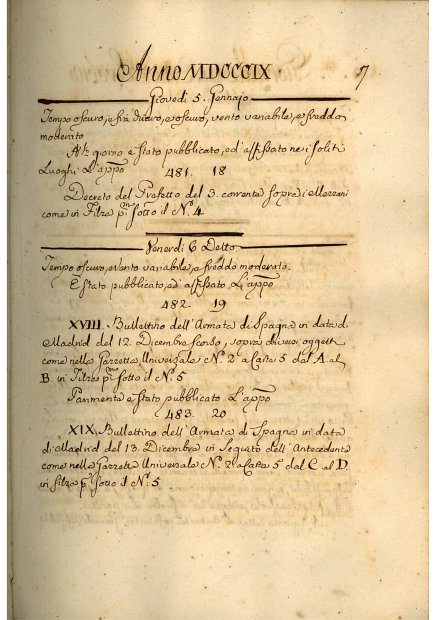 Anno MDCCCIX 7
Giovedi 5. Gennajo
Tempo oscuro, e fra di oscuro, vento variabile, e freddo
moderato
A hr giorno e stato pubblicato, ed' affissato ne i soliti
Luoghi L'appō
481. 18
Decreto del Prefetto del 3. corrente sopra i
come in Filza pr̄n sotto il N.º 4
Venerdi 6 Detto
Tempo oscuro, e Vento variabile, e freddo moderato.
E stato pubblicato, ed' affissato L'appō
482. 19
XVIII. Bullettino dell'Armata di Spagna in data di
Madrid del 12. Dicembre scorso, sopra diversi oggetti
come nella Gazzetta Universale N.º 2 a Carta 5 dal A. al
B. in Filza pr̄n sotto il N.º 5
Parimente e stato pubblicato L'appō
483. 20
XIX. Bullettino dell'Armata di Spagna in data
di Madrid del 13. Dicembre in Seguito dell'Antecedente
come nella Gazzetta Universale N.º 2 a Carta 5 dal C. al D.
in filza pr̄ sotto il N.º 5